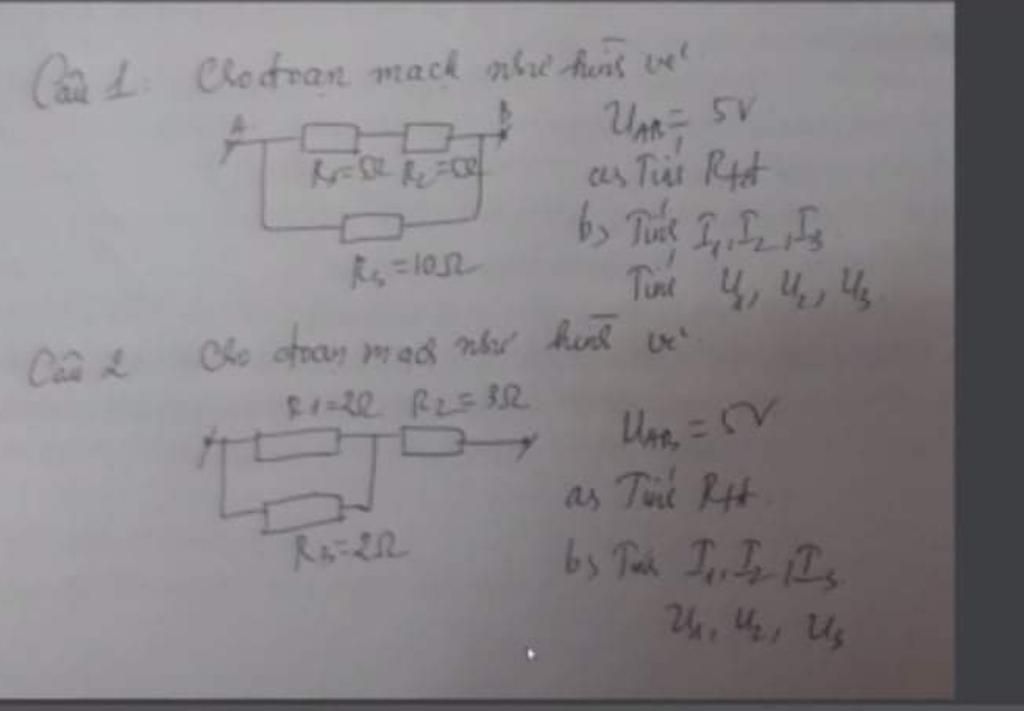 Câu 1: Cho đoạn mạch như hình vẽ
A B
R1=5Ω R2=5Ω
R3=10Ω
UAB= 5V
a, Tính Rtđ
b, Tính I1, I2, I3
Tính U1, U2, U3
Câu 2 Cho đoạn mạch như hình vẽ
R1=2Ω R2=3Ω
R3=2Ω
UAB = 5V
a, Tính Rtđ
b, Tính I1, I2, I3
U1, U2, U3